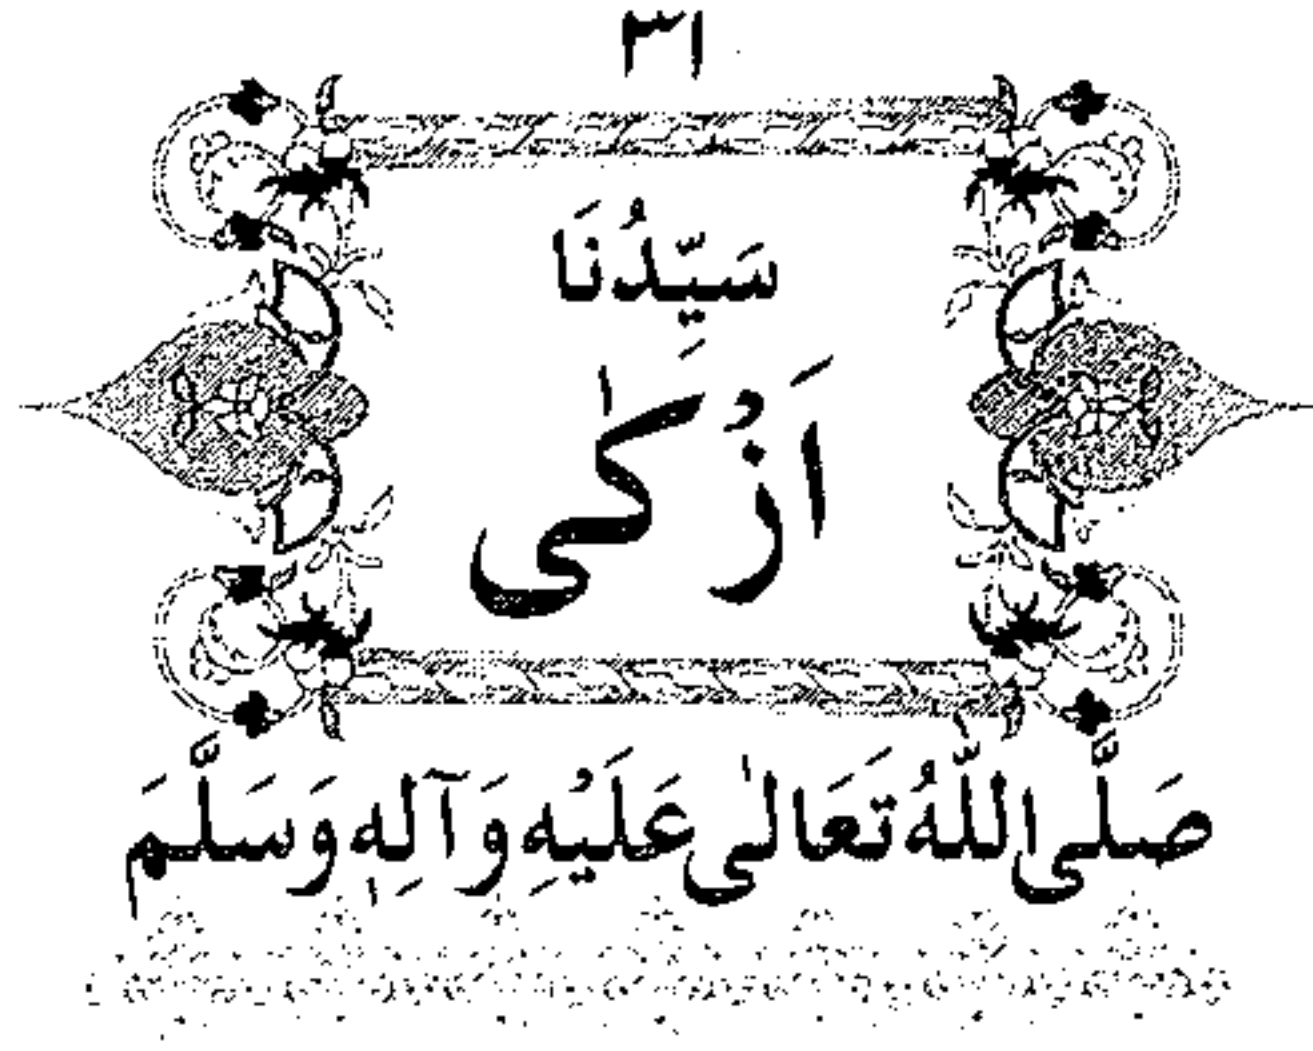 ٣١
سَيِّدُنَا
اَزْكٰى
صَلَّى اللّٰهُ تَعَالٰى عَلَيْهِ وَآلِهٖ وَسَلَّمَ